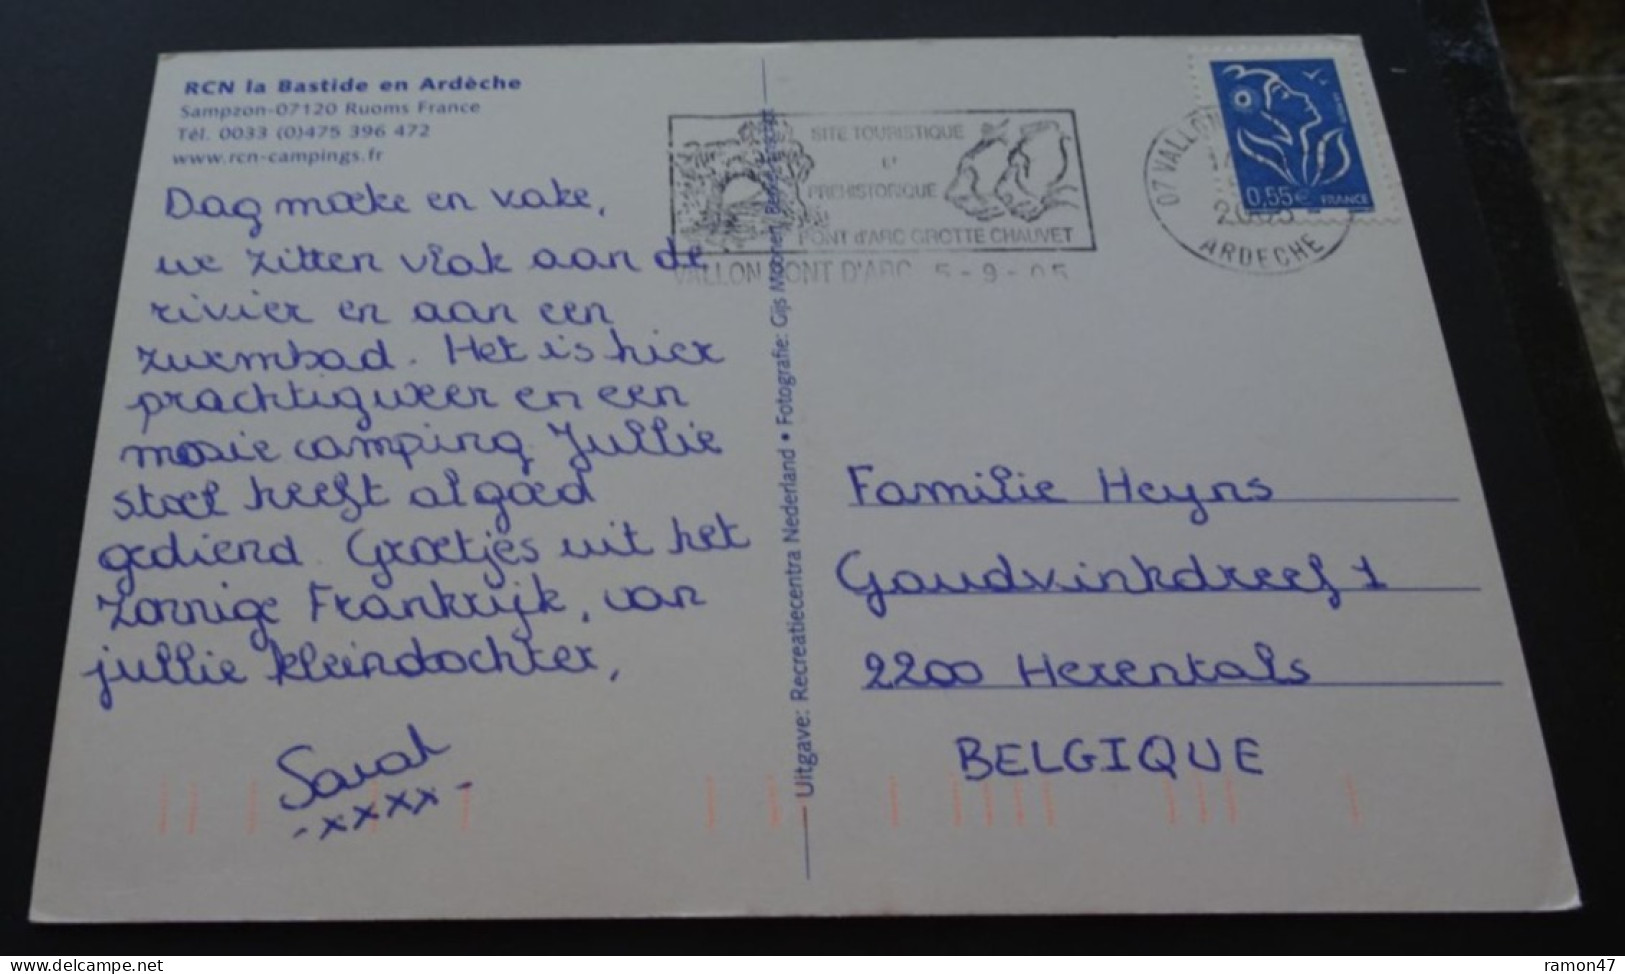 RCN la Bastide en Ardèche
Sampzon-07120 Ruoms France
Tél. 0033 (0)475 396 472
www.rcn-campings.fr
Dag moeke en vake,
we zitten vlak aan de
rivier en aan een
zwembad. Het is hier
prachtig weer en een
mooie camping. Jullie
stoel heeft al goed
gediend. Groetjes uit het
zonnige Frankrijk, van
jullie kleindochter,
Sarah
-xxxx-
Uitgave: Recreatiecentra Nederland • Fotografie: Gijs
SITE TOURISTIQUE
ET
PREHISTORIQUE
PONT d'ARC GROTTE CHAUVET
VALLON PONT D'ARC 5-9-05
07 VALLON
2005
ARDECHE
0,55€ FRANCE
Familie Heyns
Goudvinkdreef 1
2200 Herentals
BELGIQUE
ramon47